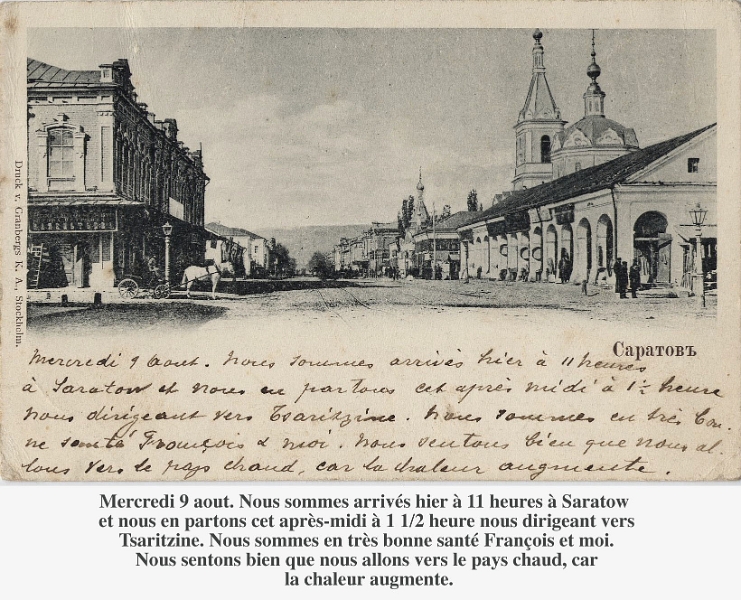 Druck v. Granbergs K. A., Stockholm.
Саратовъ
Mercredi 9 Aout. Nous sommes arrivés hier à 11 heures
à Saratow et nous en partons cet après midi à 1 1/2 heure
nous dirigeant vers Tsaridzine. Nous sommes en très bon-
ne santé François & moi. Nous sentons bien que nous al-
lons vers le pays chaud, car la chaleur augmente.
Mercredi 9 aout. Nous sommes arrivés hier à 11 heures à Saratow
et nous en partons cet après-midi à 1 1/2 heure nous dirigeant vers
Tsaritzine. Nous sommes en très bonne santé François et moi.
Nous sentons bien que nous allons vers le pays chaud, car
la chaleur augmente.